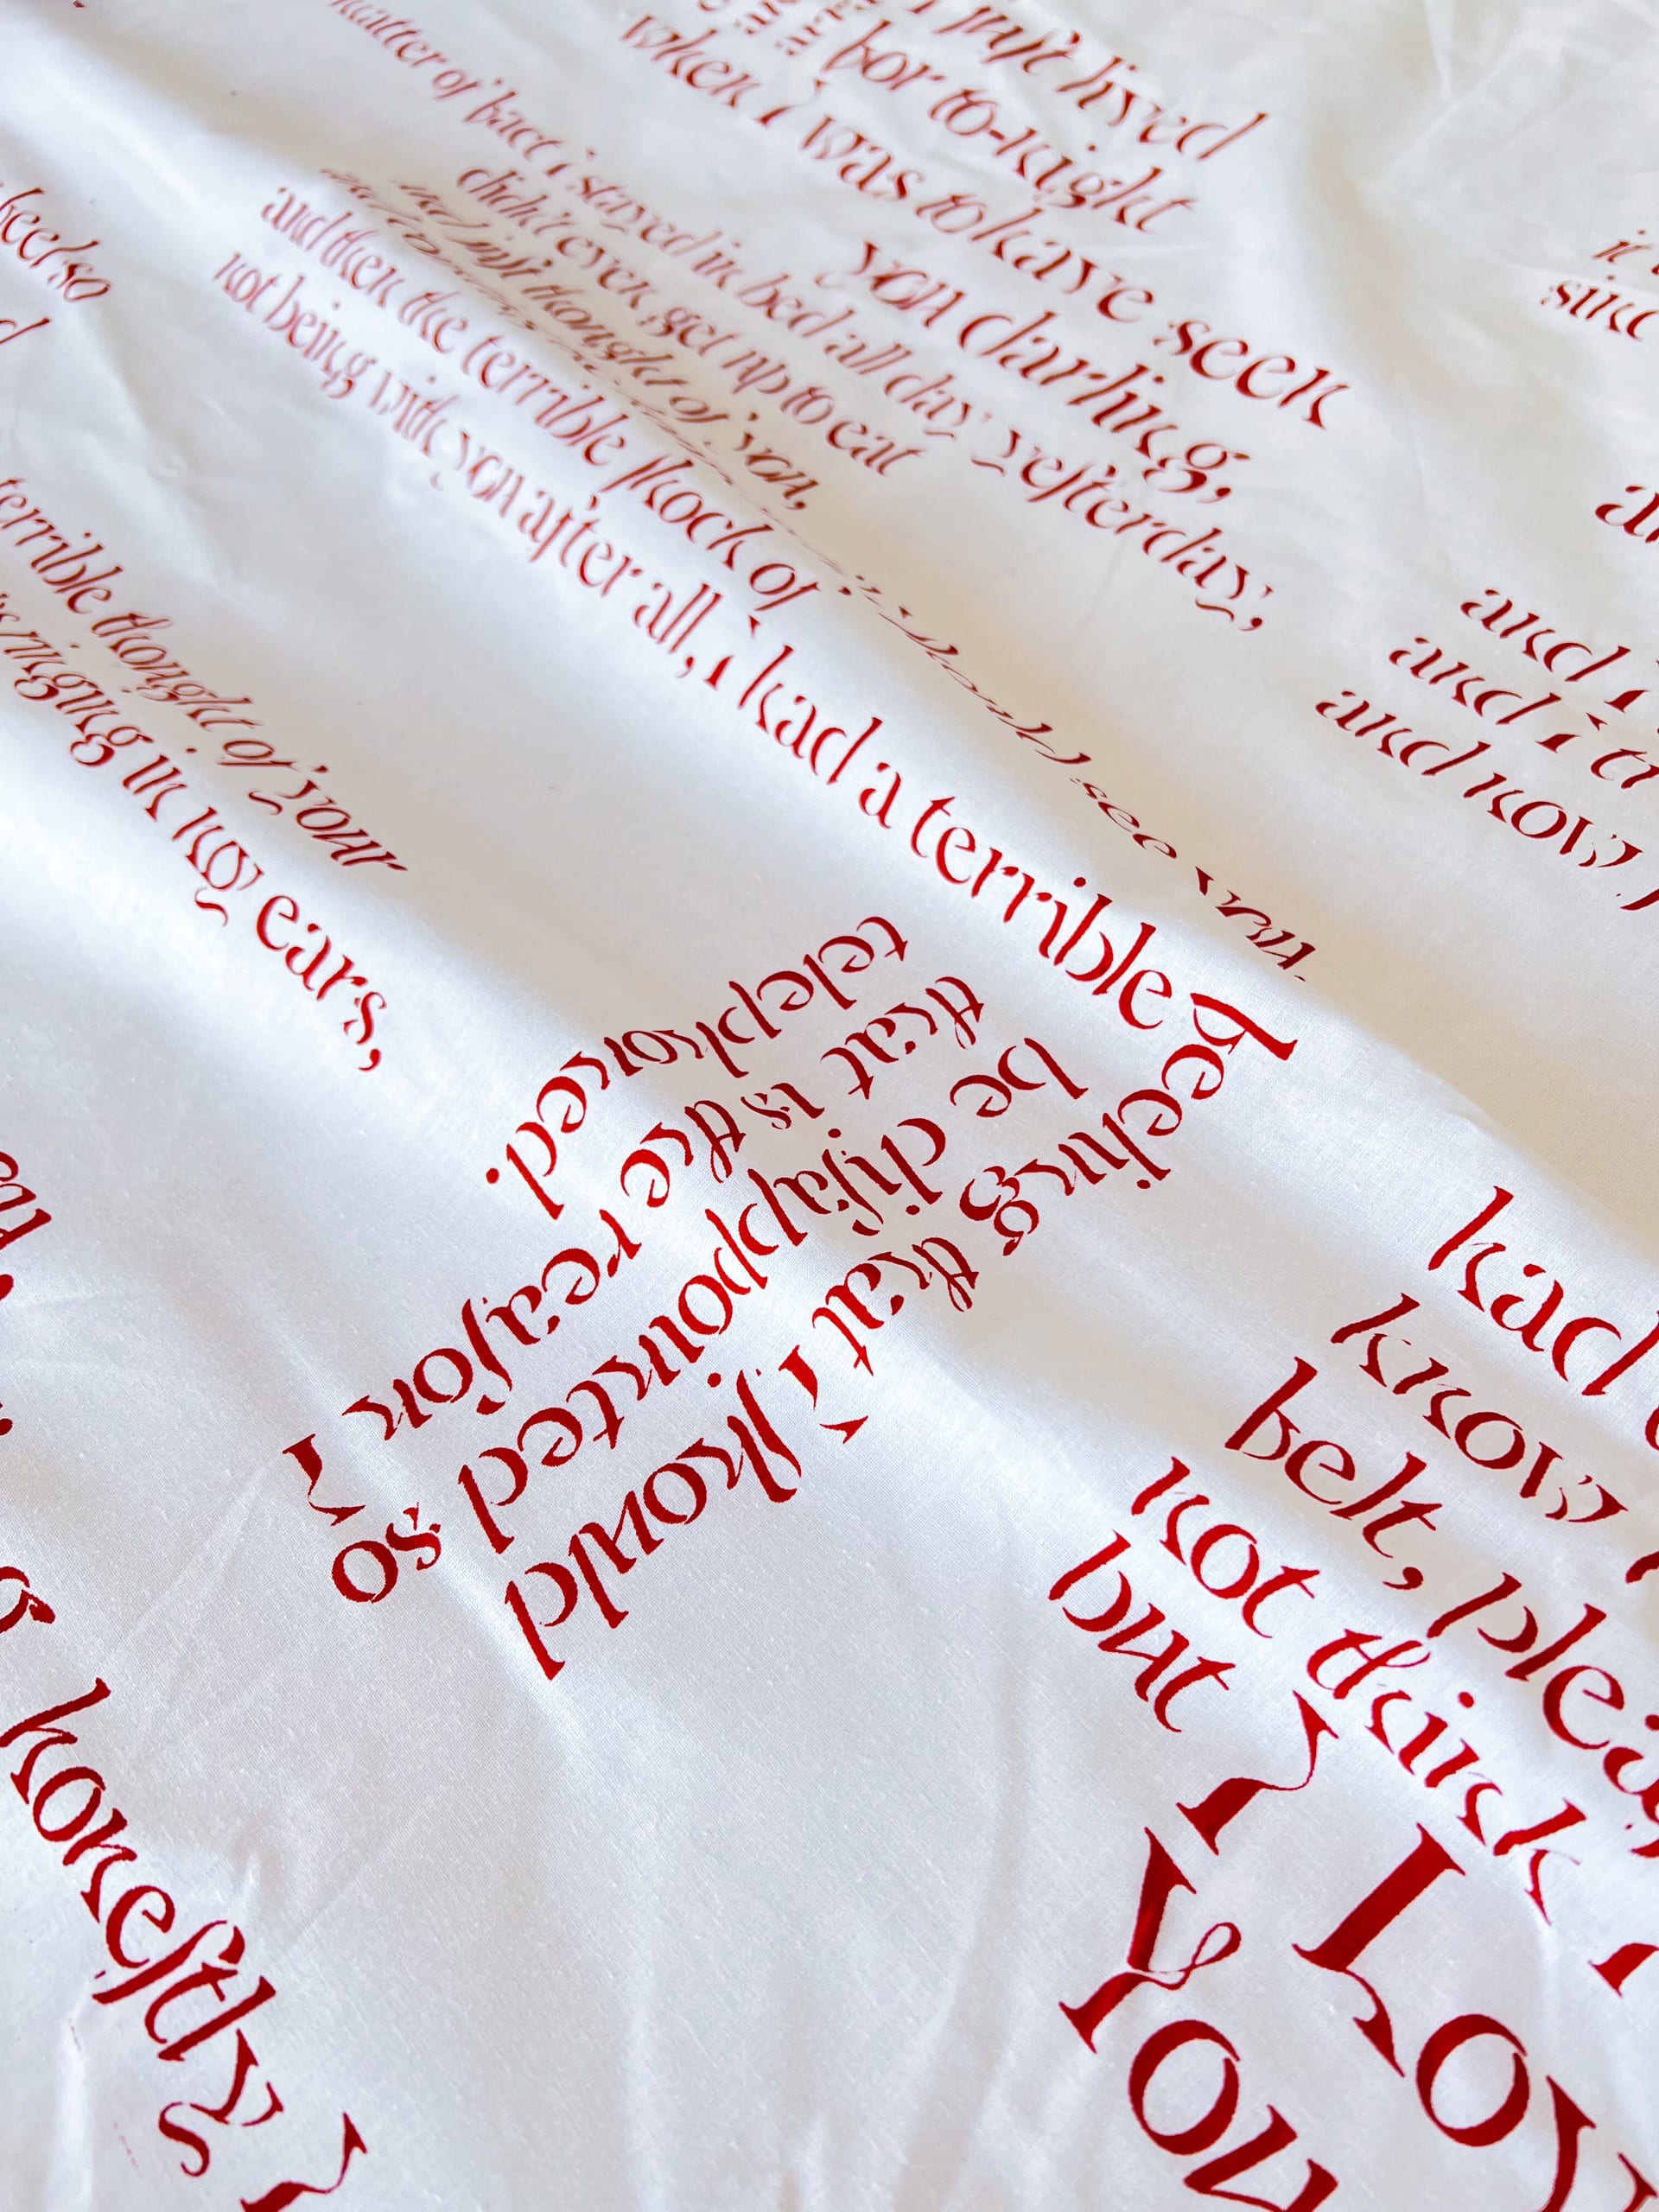 I just lived
for to-night
when I was to have seen
you darling,
matter of fact i stayed in bed all day yesterday,
didn't even get up to eat
and just thought of you,
i should see you.
and then the terrible shock of
not being with you after all, i had a terrible
feeling that I should
be disappointed
that is the reason I so
telephoned.
feel so
terrible thought of your
ringing in my ears,
honestly I
had
know
felt, please
not think I
but I Love
You
and I
and I
and now,